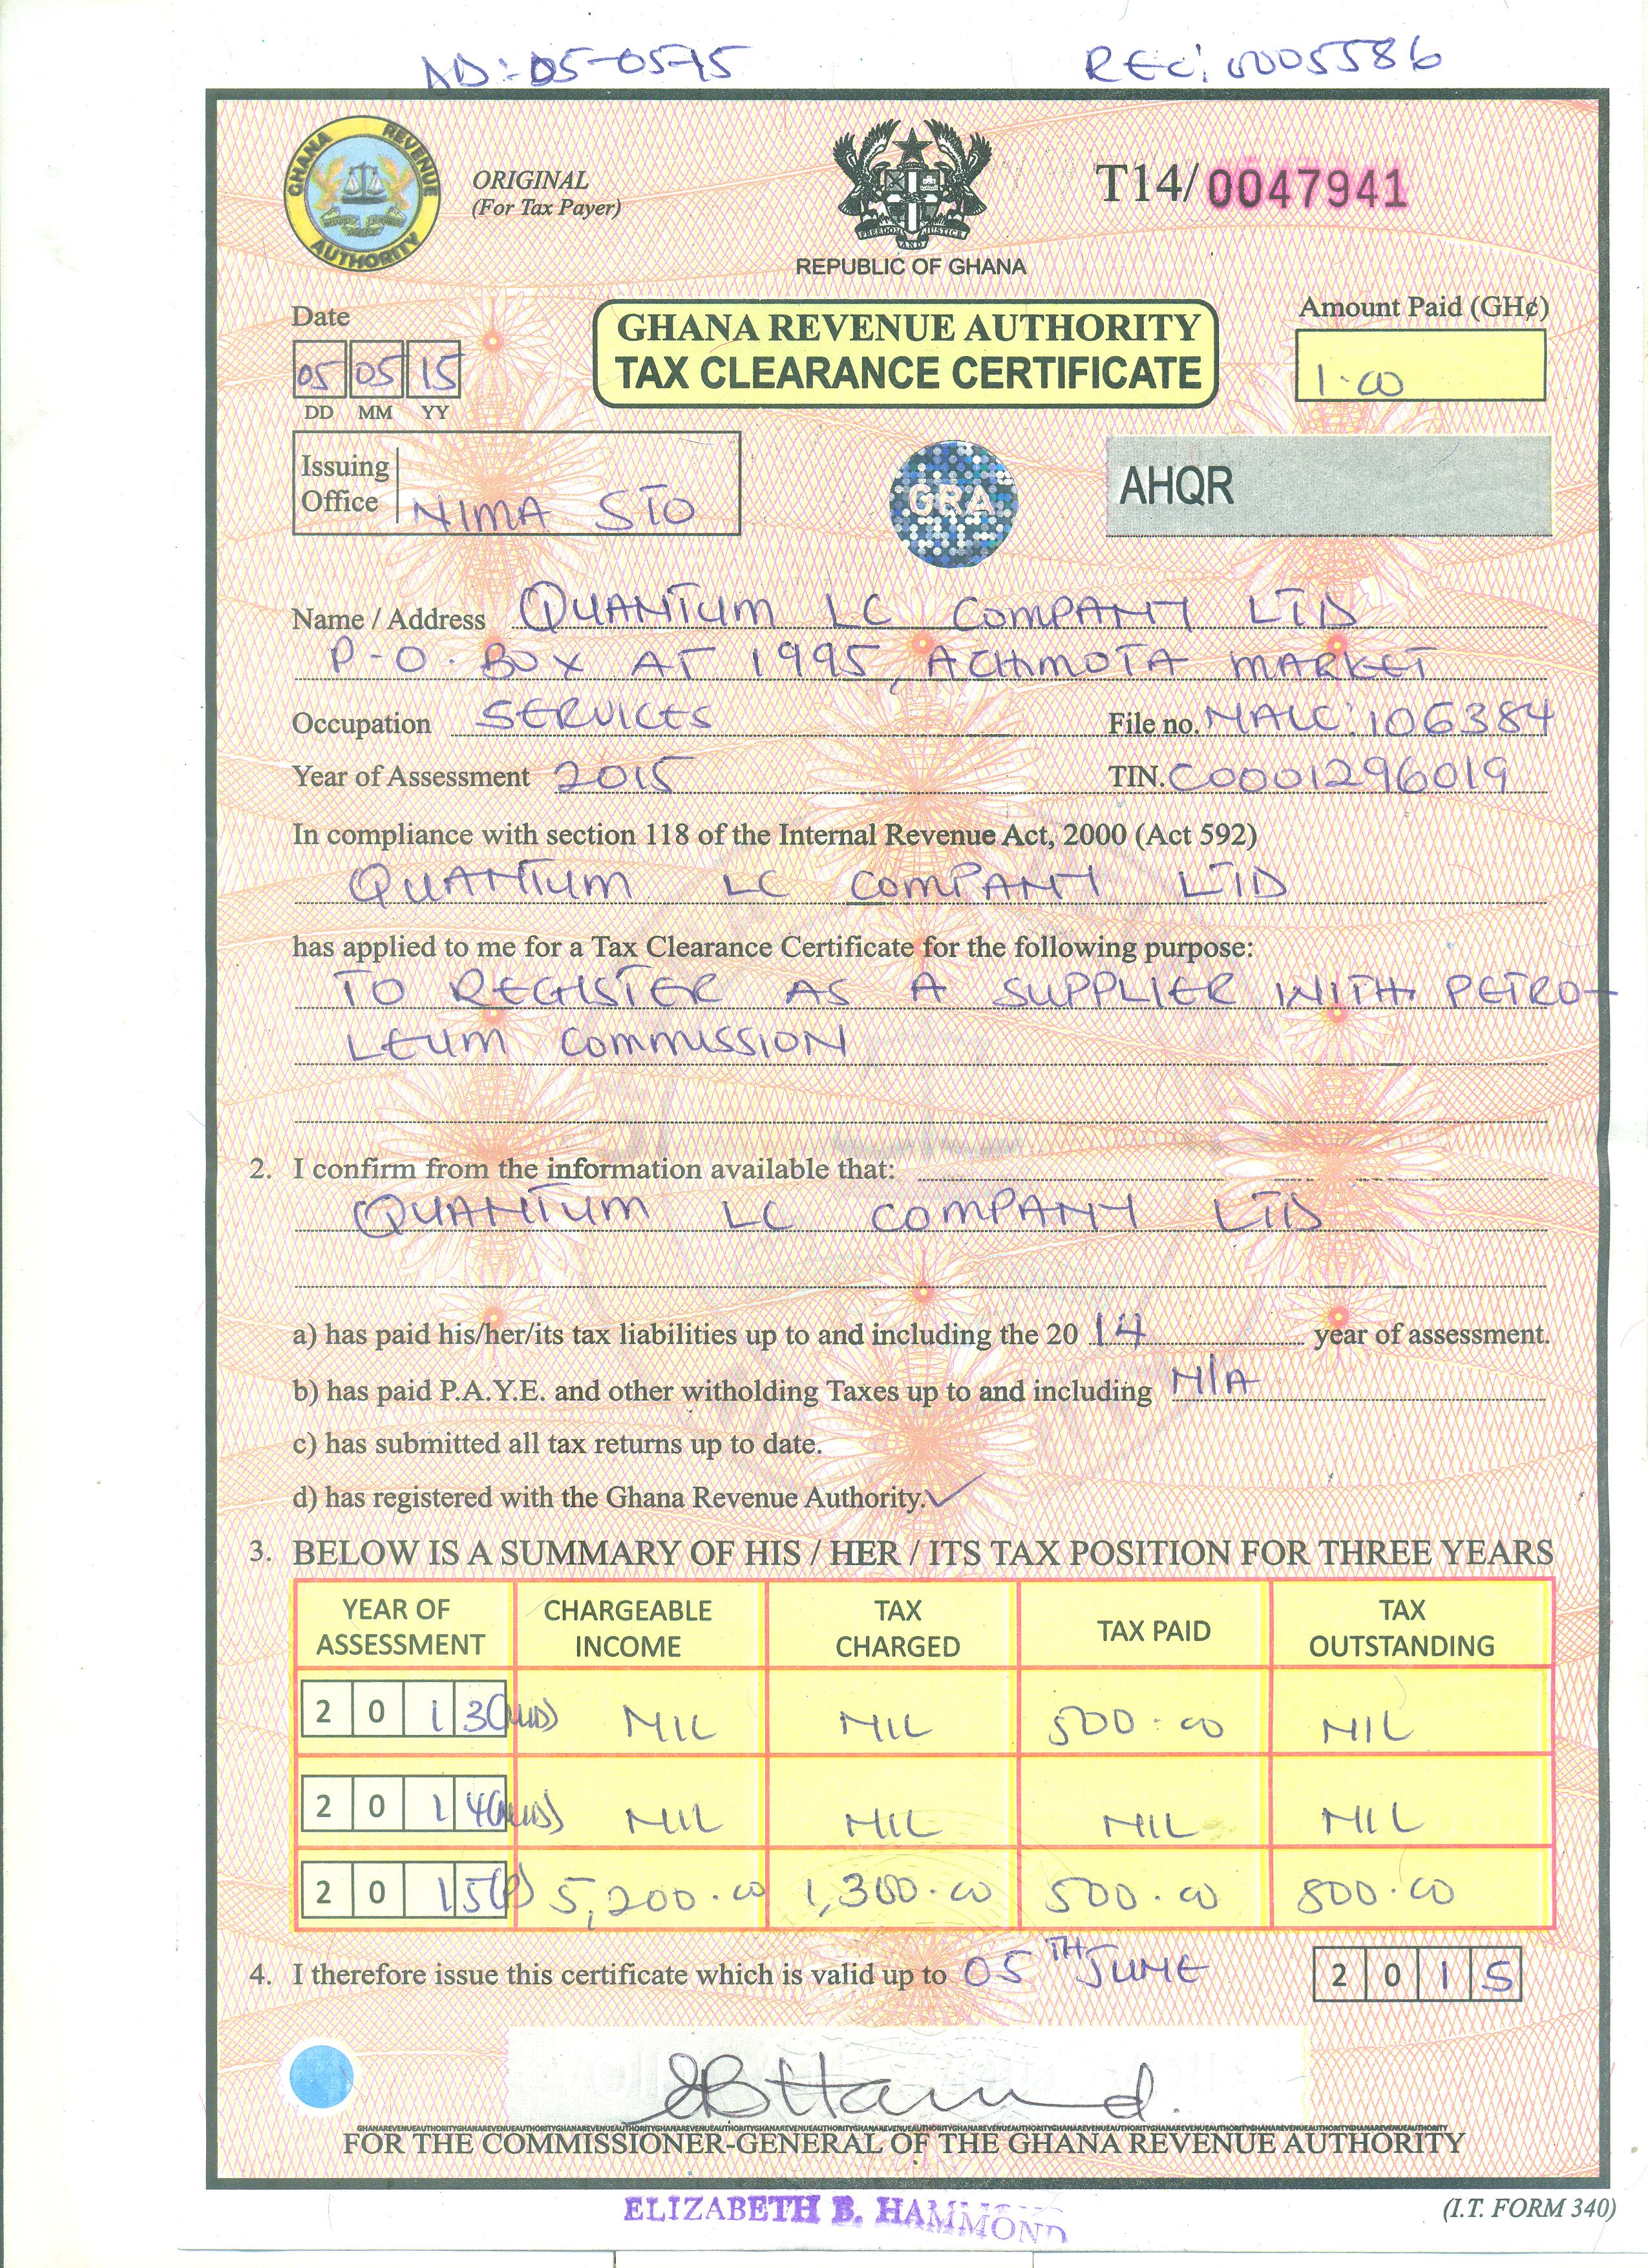 AD:-05-05-15 REC: 0005586
GHANA REVENUE AUTHORITY
ORIGINAL
(For Tax Payer)
FREEDOM AND JUSTICE
REPUBLIC OF GHANA
T14/0047941
Date
05 05 15
DD MM YY
GHANA REVENUE AUTHORITY
TAX CLEARANCE CERTIFICATE
Amount Paid (GH¢)
1.00
Issuing
Office NIMA STO
GRA
AHQR
Name / Address QUANTUM LC COMPANY LTD
P.O. BOX AT 1995, ACHIMOTA MARKET
Occupation SERVICES File no. NALC:106384
Year of Assessment 2015 TIN. C0001296019
In compliance with section 118 of the Internal Revenue Act, 2000 (Act 592)
QUANTUM LC COMPANY LTD
has applied to me for a Tax Clearance Certificate for the following purpose:
TO REGISTER AS A SUPPLIER WITH PETRO-
LEUM COMMISSION
2. I confirm from the information available that:
QUANTUM LC COMPANY LTD
a) has paid his/her/its tax liabilities up to and including the 20 14 year of assessment.
b) has paid P.A.Y.E. and other witholding Taxes up to and including N/A
c) has submitted all tax returns up to date.
d) has registered with the Ghana Revenue Authority. ✓
3. BELOW IS A SUMMARY OF HIS / HER / ITS TAX POSITION FOR THREE YEARS
YEAR OF ASSESSMENT CHARGEABLE INCOME TAX CHARGED TAX PAID TAX OUTSTANDING
2013 NIL NIL 500.00 NIL
2014 NIL NIL NIL NIL
2015(P) 5,200.00 1,300.00 500.00 800.00
4. I therefore issue this certificate which is valid up to 05TH JUNE 2015
GHANAREVENUEAUTHORITYGHANAREVENUEAUTHORITYGHANAREVENUEAUTHORITY
FOR THE COMMISSIONER-GENERAL OF THE GHANA REVENUE AUTHORITY
ELIZABETH B. HAMMOND
(I.T. FORM 340)